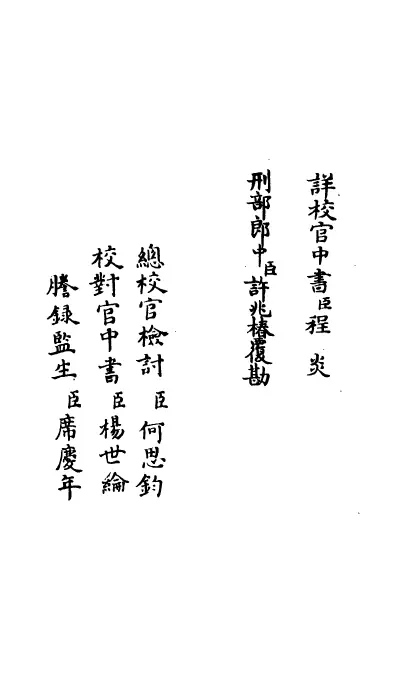 詳校官中書臣程炎
刑部郎中臣許兆椿覆勘
總校官檢討臣何思鈞
校對官中書臣楊世綸
謄錄監生臣席慶年